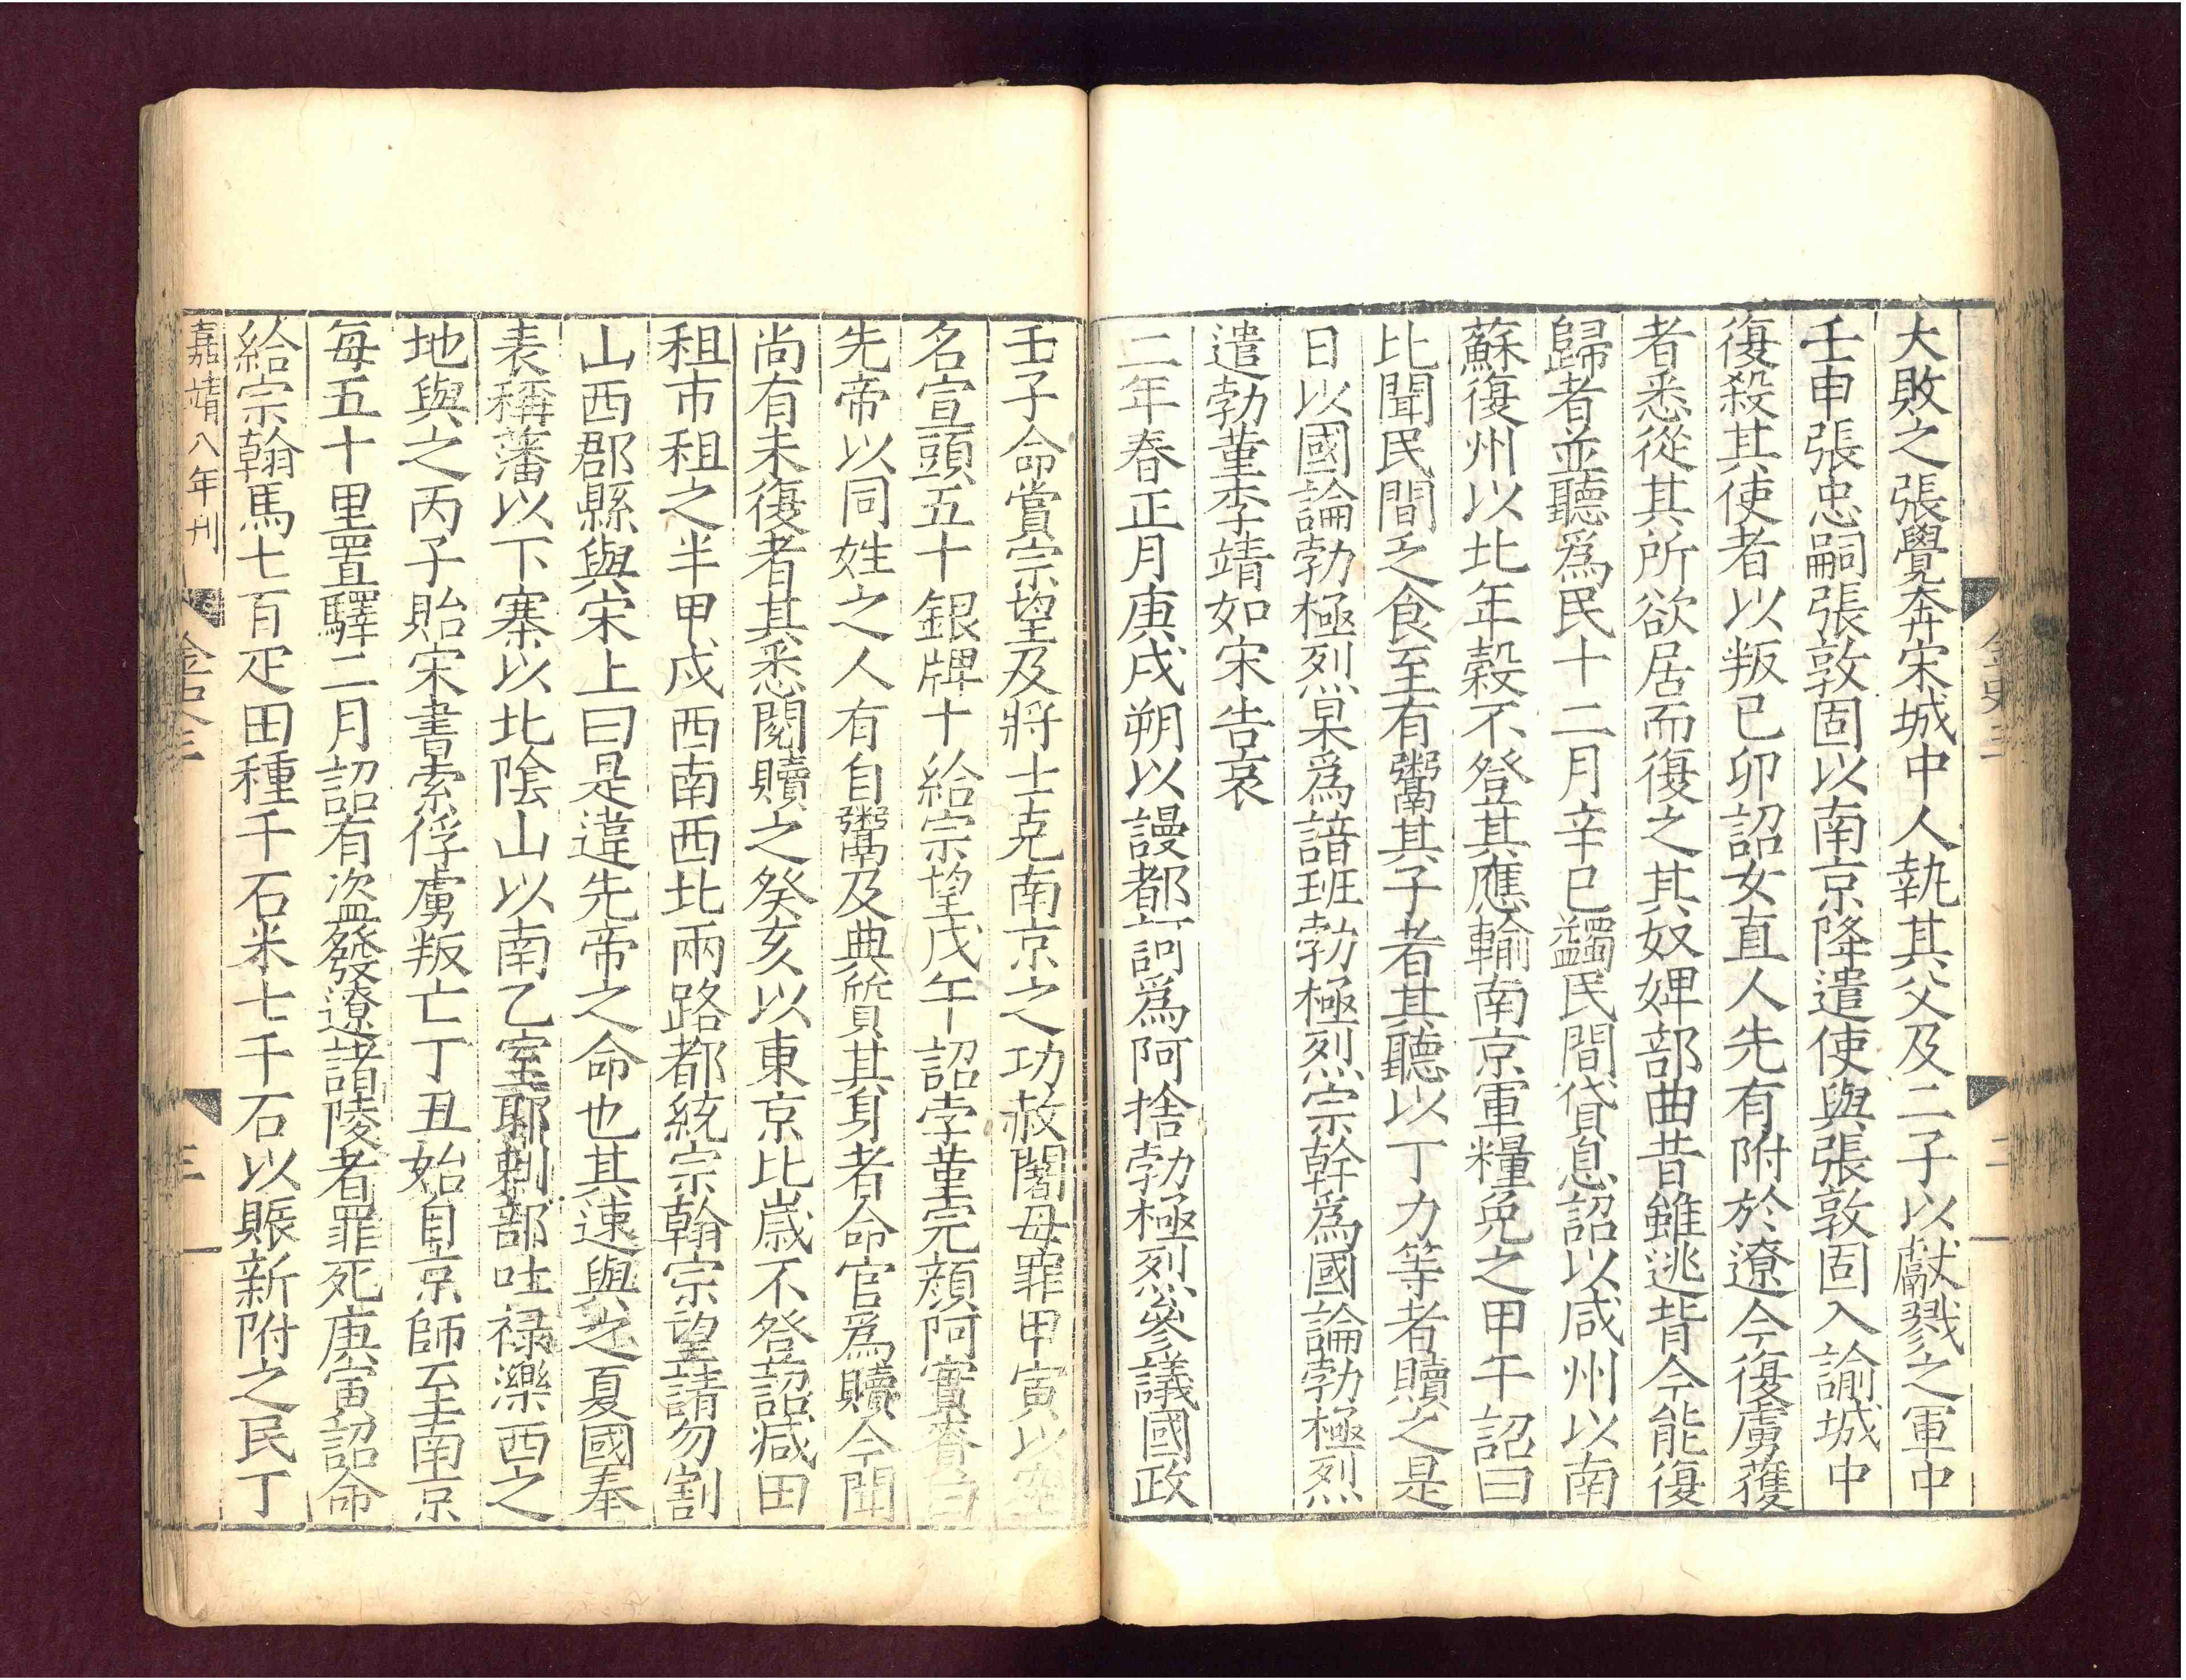 金史三
二
大敗之張覺奔宋城中人執其父及二子以獻戮之軍中
壬申張忠嗣張敦固以南京降遣使與張敦固入諭城中
復殺其使者以叛已卯詔女直人先有附於遼今復虜獲
者悉從其所欲居而復之其奴婢部曲昔雖逃背今能復
歸者並聽爲民十二月辛巳蠲民間貸息詔以咸州以南
蘇復州以北年穀不登其應輸南京軍糧免之甲午詔曰
比聞民間乏食至有鬻其子者其聽以丁力等者贖之是
日以國論勃極烈杲爲諳班勃極烈宗幹爲國論勃極烈
遣勃菫李靖如宋告哀
二年春正月庚戌朔以謾都訶爲阿捨勃極烈參議國政
壬子命賞宗望及將士克南京之功赦闍母罪甲寅以空
名宣頭五十銀牌十給宗望戊午詔孛菫完顏阿實賚曰
先帝以同姓之人有自鬻及典質其身者命官爲贖今聞
尚有未復者其悉閱贖之癸亥以東京比歲不登詔减田
租市租之半甲戍西南西北兩路都統宗翰宗望請勿割
山西郡縣與宋上曰是違先帝之命也其速與之夏國奉
表稱藩以下寨以北陰山以南乙室耶剌部吐禄濼西之
地與之丙子貽宋書索俘虜叛亡丁丑始自京師至南京
每五十里置驛二月詔有盜發遼諸陵者罪死庚寅詔命
給宗翰馬七百疋田種千石米七千石以賑新附之民丁
嘉靖八年刊
金史三
三